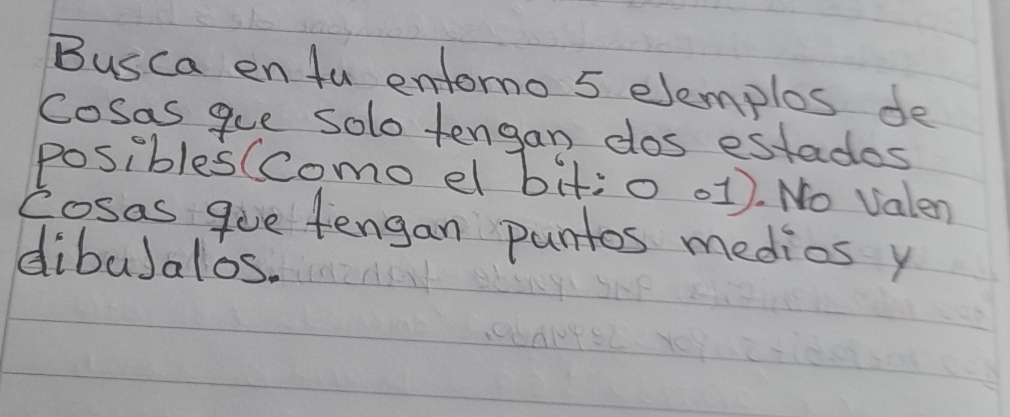 Busca en tu entorno 5 eJemplos de
Cosas que solo tengan dos estados
posibles (Como el bit: 0 o 1). No valen
Cosas que tengan puntos medios y
dibuJalos.